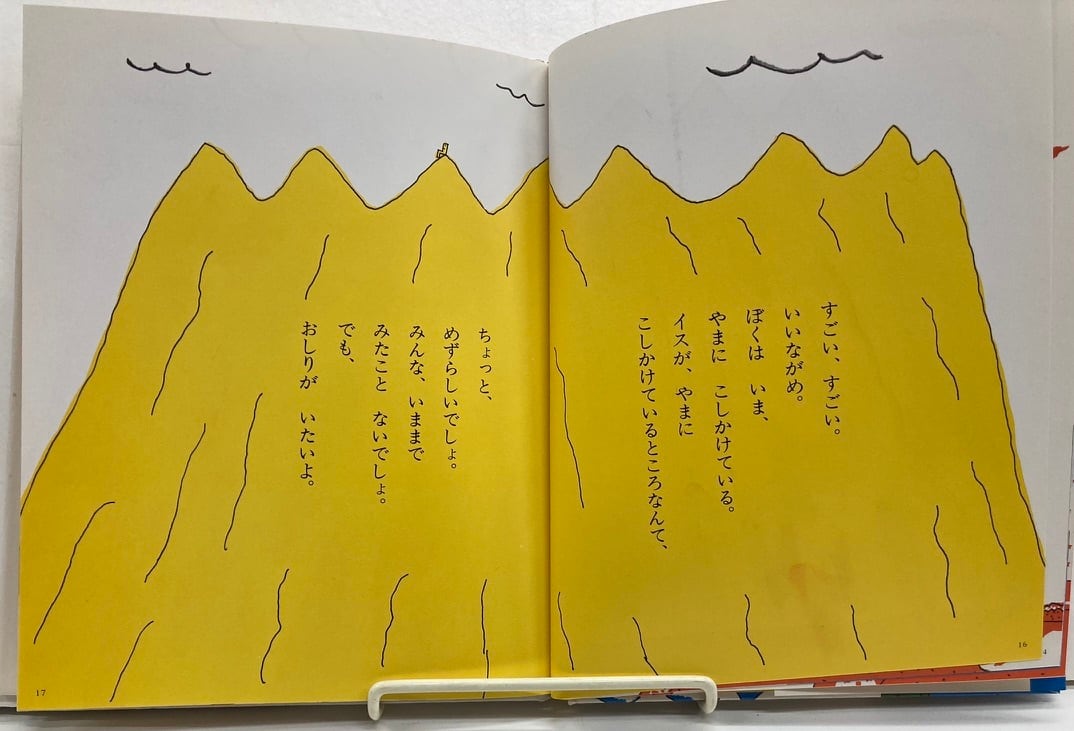 すごい、すごい。
いいながめ。
ぼくは　いま、
やまに　こしかけている。
イスが、やまに
こしかけているところなんて、
ちょっと、
めずらしいでしょ。
みんな、いままで
みたこと　ないでしょ。
でも、
おしりが　いたいよ。
16
17
4